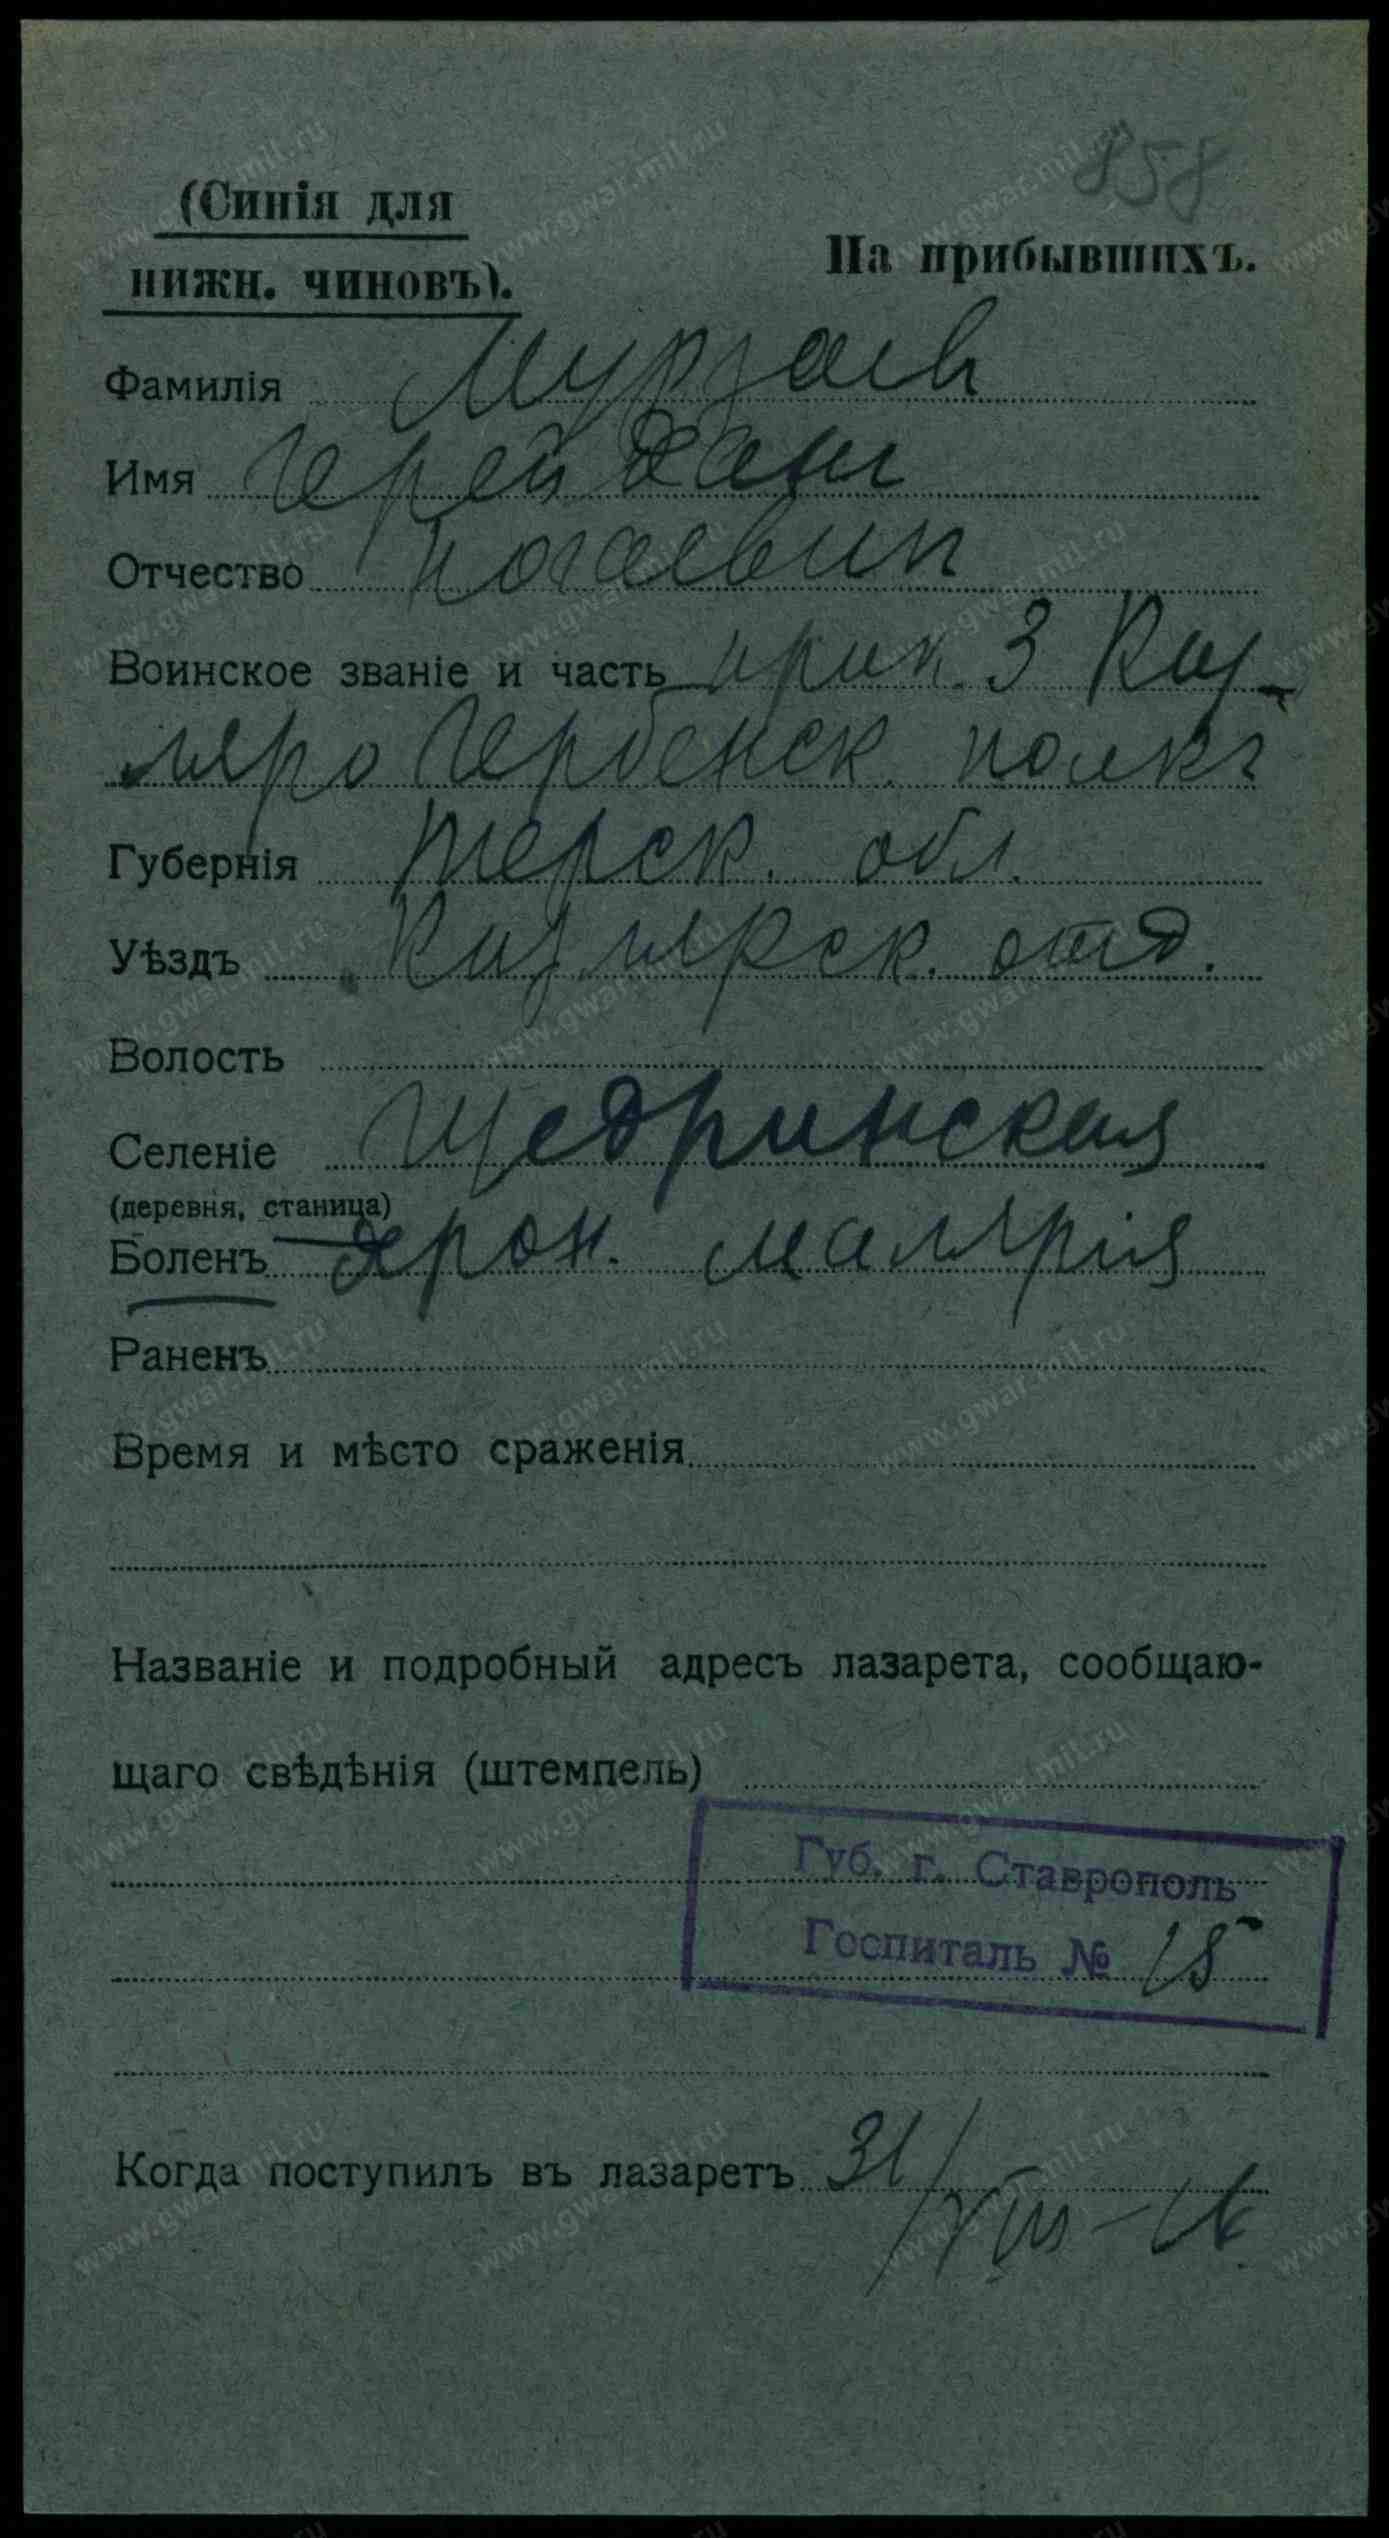 858
(Синія для
нижн. чиновъ).
На прибывшихъ.
Фамилія Мурзаев
Имя Герей Хан
Отчество Ногаевич
Воинское званіе и часть прик. 3 Киз-
ляро Гербенск. полка
Губернія Терск. обл.
Уѣздъ Кизлярск. отд.
Волость
Селеніе Щедринская
(деревня, станица)
Боленъ Хрон. малярія
Раненъ
Время и мѣсто сраженія
Названіе и подробный адресъ лазарета, сообщаю-
щаго свѣдѣнія (штемпель)
Губ. г. Ставрополь
Госпиталь № 15
Когда поступилъ въ лазаретъ 31/VIII-16